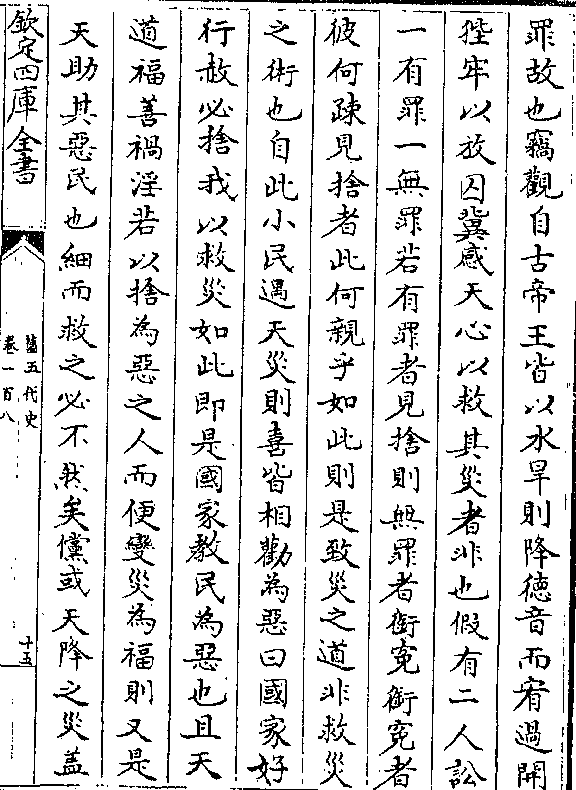 罪故也竊觀自古帝王皆以水旱則降德音而宥過開
狴牢以放囚冀感天心以救其災者非也假有二人訟
一有罪一無罪若有罪者見捨則無罪者銜寃銜寃者
彼何疎見捨者此何親乎如此則是致災之道非救災
之術也自此小民遇天災則喜皆相勸為惡曰國家好
行赦必捨我以救災如此即是國家教民為惡也且天
道福善禍淫若以捨為惡之人而便變災為福則又是
天助其惡民也細而救之必不然矣儻或天降之災蓋
欽定四庫全書
舊五代史
卷一百八
十五